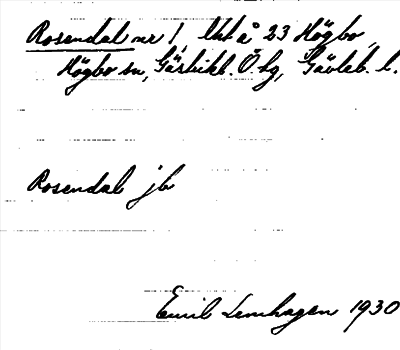 Rosendal nr 1, lht å 23 Högbo,
Högbo sn, Gästrikl. Ö. tg, Gävleb. l.
Rosendal jb
Emil Lennhagen 1930